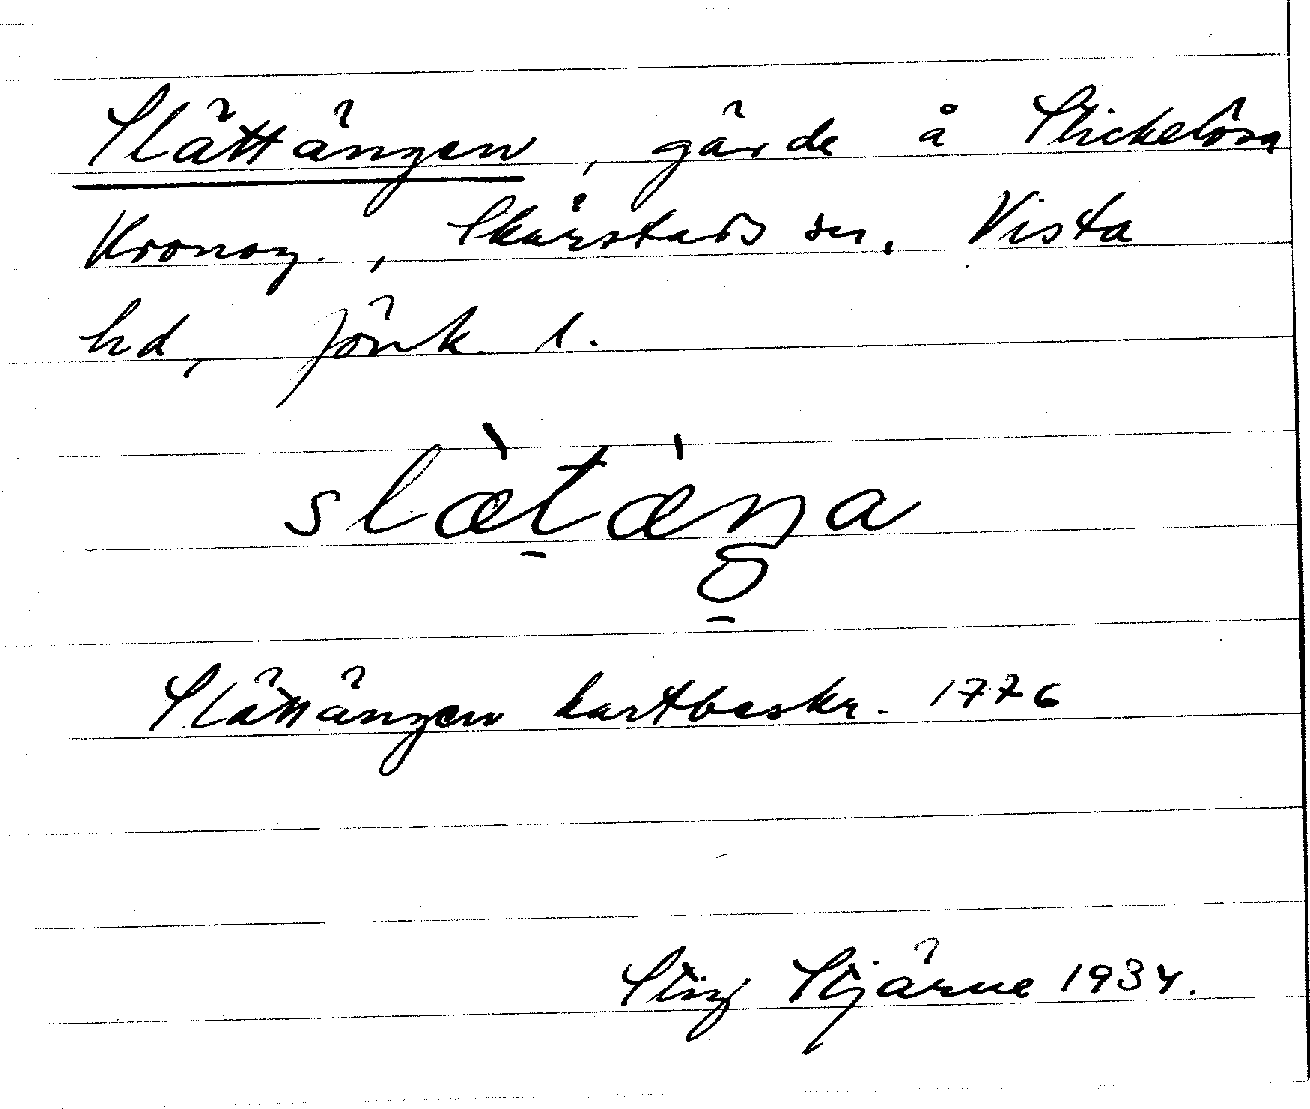 Slättängen, gärde å Stickelösa
Kronog., Skärstads sn, Vista
hd, Jönk l.
slæ̀tæ̀ŋa
Slättängen kartbeskr. 1776
Stig Stjärne 1934.